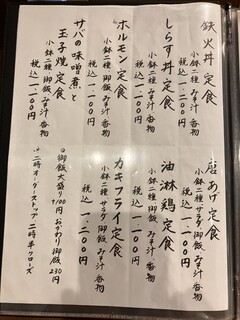 鉄火丼定食
小鉢二種 みそ汁 香物
税込 一、一〇〇円
しらす丼定食
小鉢二種 みそ汁 香物
税込 一、一〇〇円
ホルモン定食
小鉢二種 御飯 みそ汁 香物
税込 一、一〇〇円
サバの味噌煮と
玉子焼定食
小鉢二種 御飯 みそ汁 香物
税込 一、一〇〇円
唐あげ定食
小鉢二種 サラダ 御飯 みそ汁 香物
税込 一、一〇〇円
油淋鶏定食
小鉢二種 御飯 みそ汁 香物
税込 一、一〇〇円
カキフライ定食
小鉢二種 サラダ 御飯 みそ汁 香物
税込 一、二〇〇円
御飯大盛り +100円 おかわり御飯 230円
二時オーダーストップ 二時半クローズ